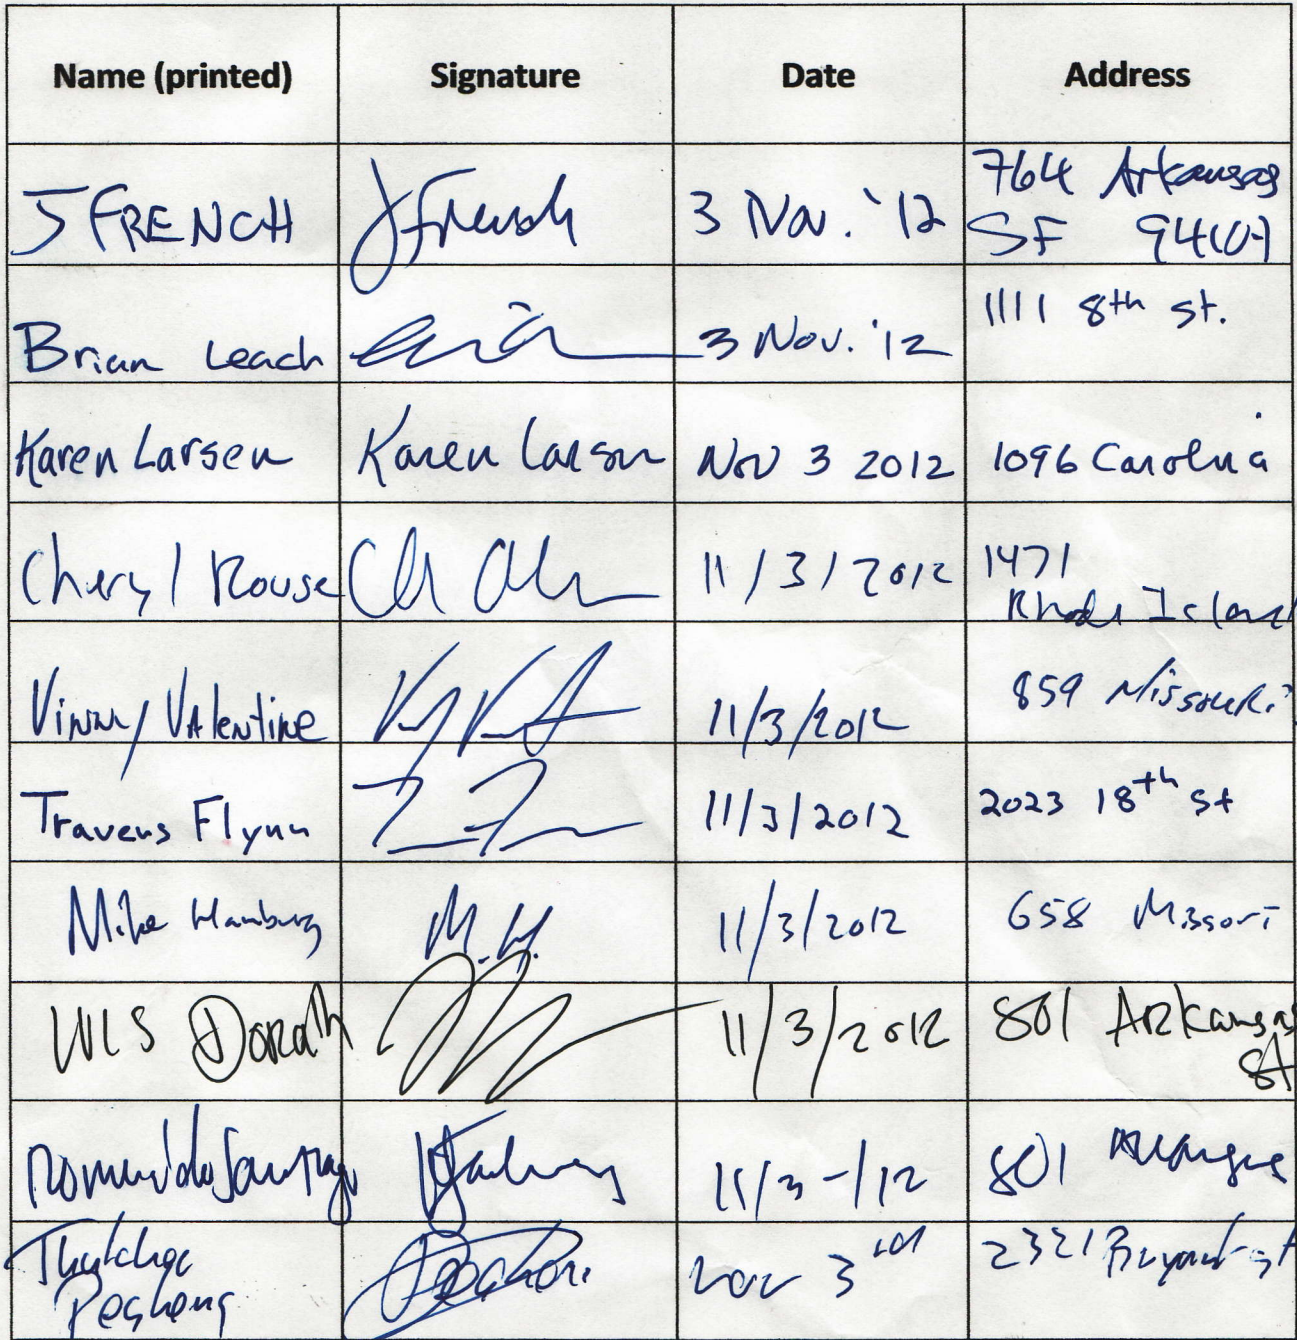 Name (printed) Signature Date Address
J FRENCH J French 3 Nov. '12 764 Arkansas
SF 94107
Brian Leach 3 Nov. '12 1111 8th st.
Karen Larsen Karen Larsen Nov 3 2012 1096 Carolina
Cheryl Rouse 11/3/2012 1471
Rhode Island
Vinny Valentine 11/3/2012 859 Missouri
Travens Flynn 11/3/2012 2023 18th st
Mike Hamburg M.H. 11/3/2012 658 Missori
11/3/2012 801 Arkansas
St
11/3-/12 801
Nov 3rd 2321 Bryant st